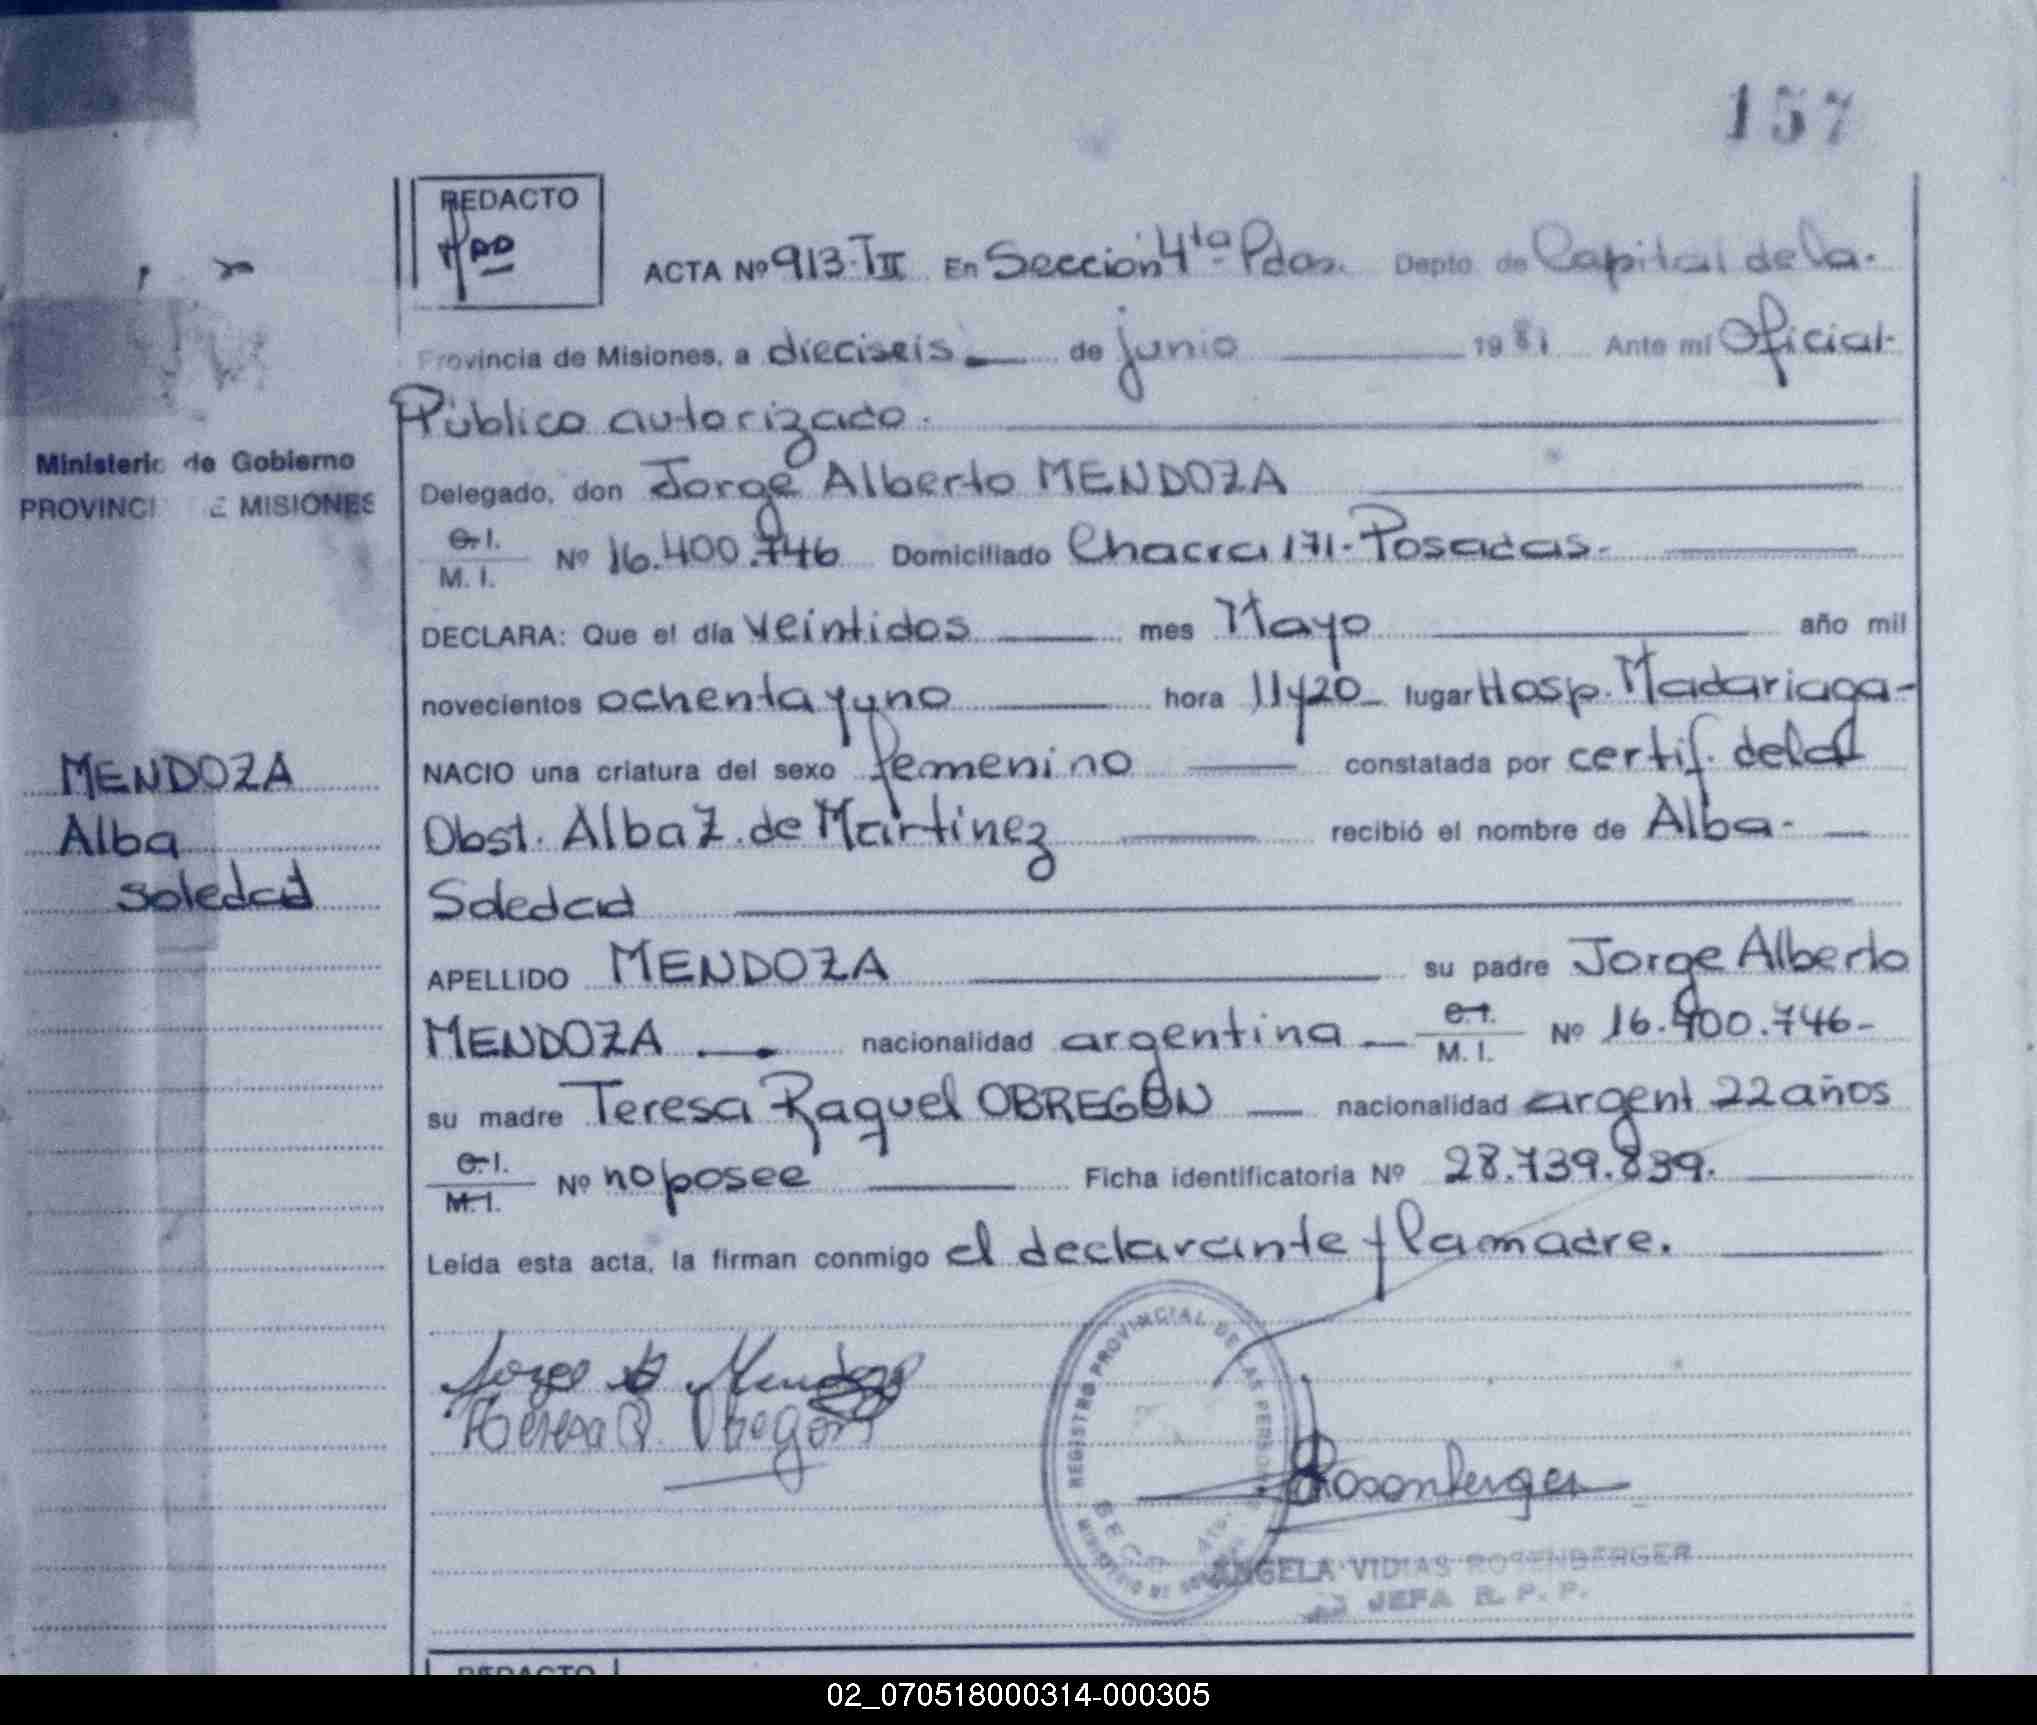 157
REDACTO
ACTA Nº 913-TII En Sección 4ta Pdas. Depto de Capital de la.
Provincia de Misiones, a dieciseis de junio 1981 Ante mí Oficial-
Público autorizado.
Ministerio de Gobierno
PROVINCI E MISIONES
Delegado, don Jorge Alberto MENDOZA
C.I.
M. I. Nº 16.400.746 Domiciliado Chacra 171-Posadas.-
DECLARA: Que el día veintidos mes Mayo año mil
novecientos ochenta y uno hora 11y20 lugar Hosp. Madariaga-
NACIO una criatura del sexo femenino constatada por certif. de la
Obst. Alba Z. de Martinez recibió el nombre de Alba-
Soledad
MENDOZA
Alba
Soledad
APELLIDO MENDOZA su padre Jorge Alberto
MENDOZA nacionalidad argentina C.I.
M. I. Nº 16.400.746-
su madre Teresa Raquel OBREGÓN nacionalidad argent 22 años
C.I.
M.I. Nº no posee Ficha identificatoria Nº 28.739.839.
Leída esta acta, la firman conmigo el declarante y la madre.
Jorge A Mendoza
Teresa R. Obregon
REGISTRO PROVINCIAL DE LAS PERSONAS
MINISTERIO DE GOBIERNO
SECC 4ta.
Rosenberger
ANGELA VIDIAS ROSENBERGER
JEFA R. P. P.
REDACTO
02_070518000314-000305